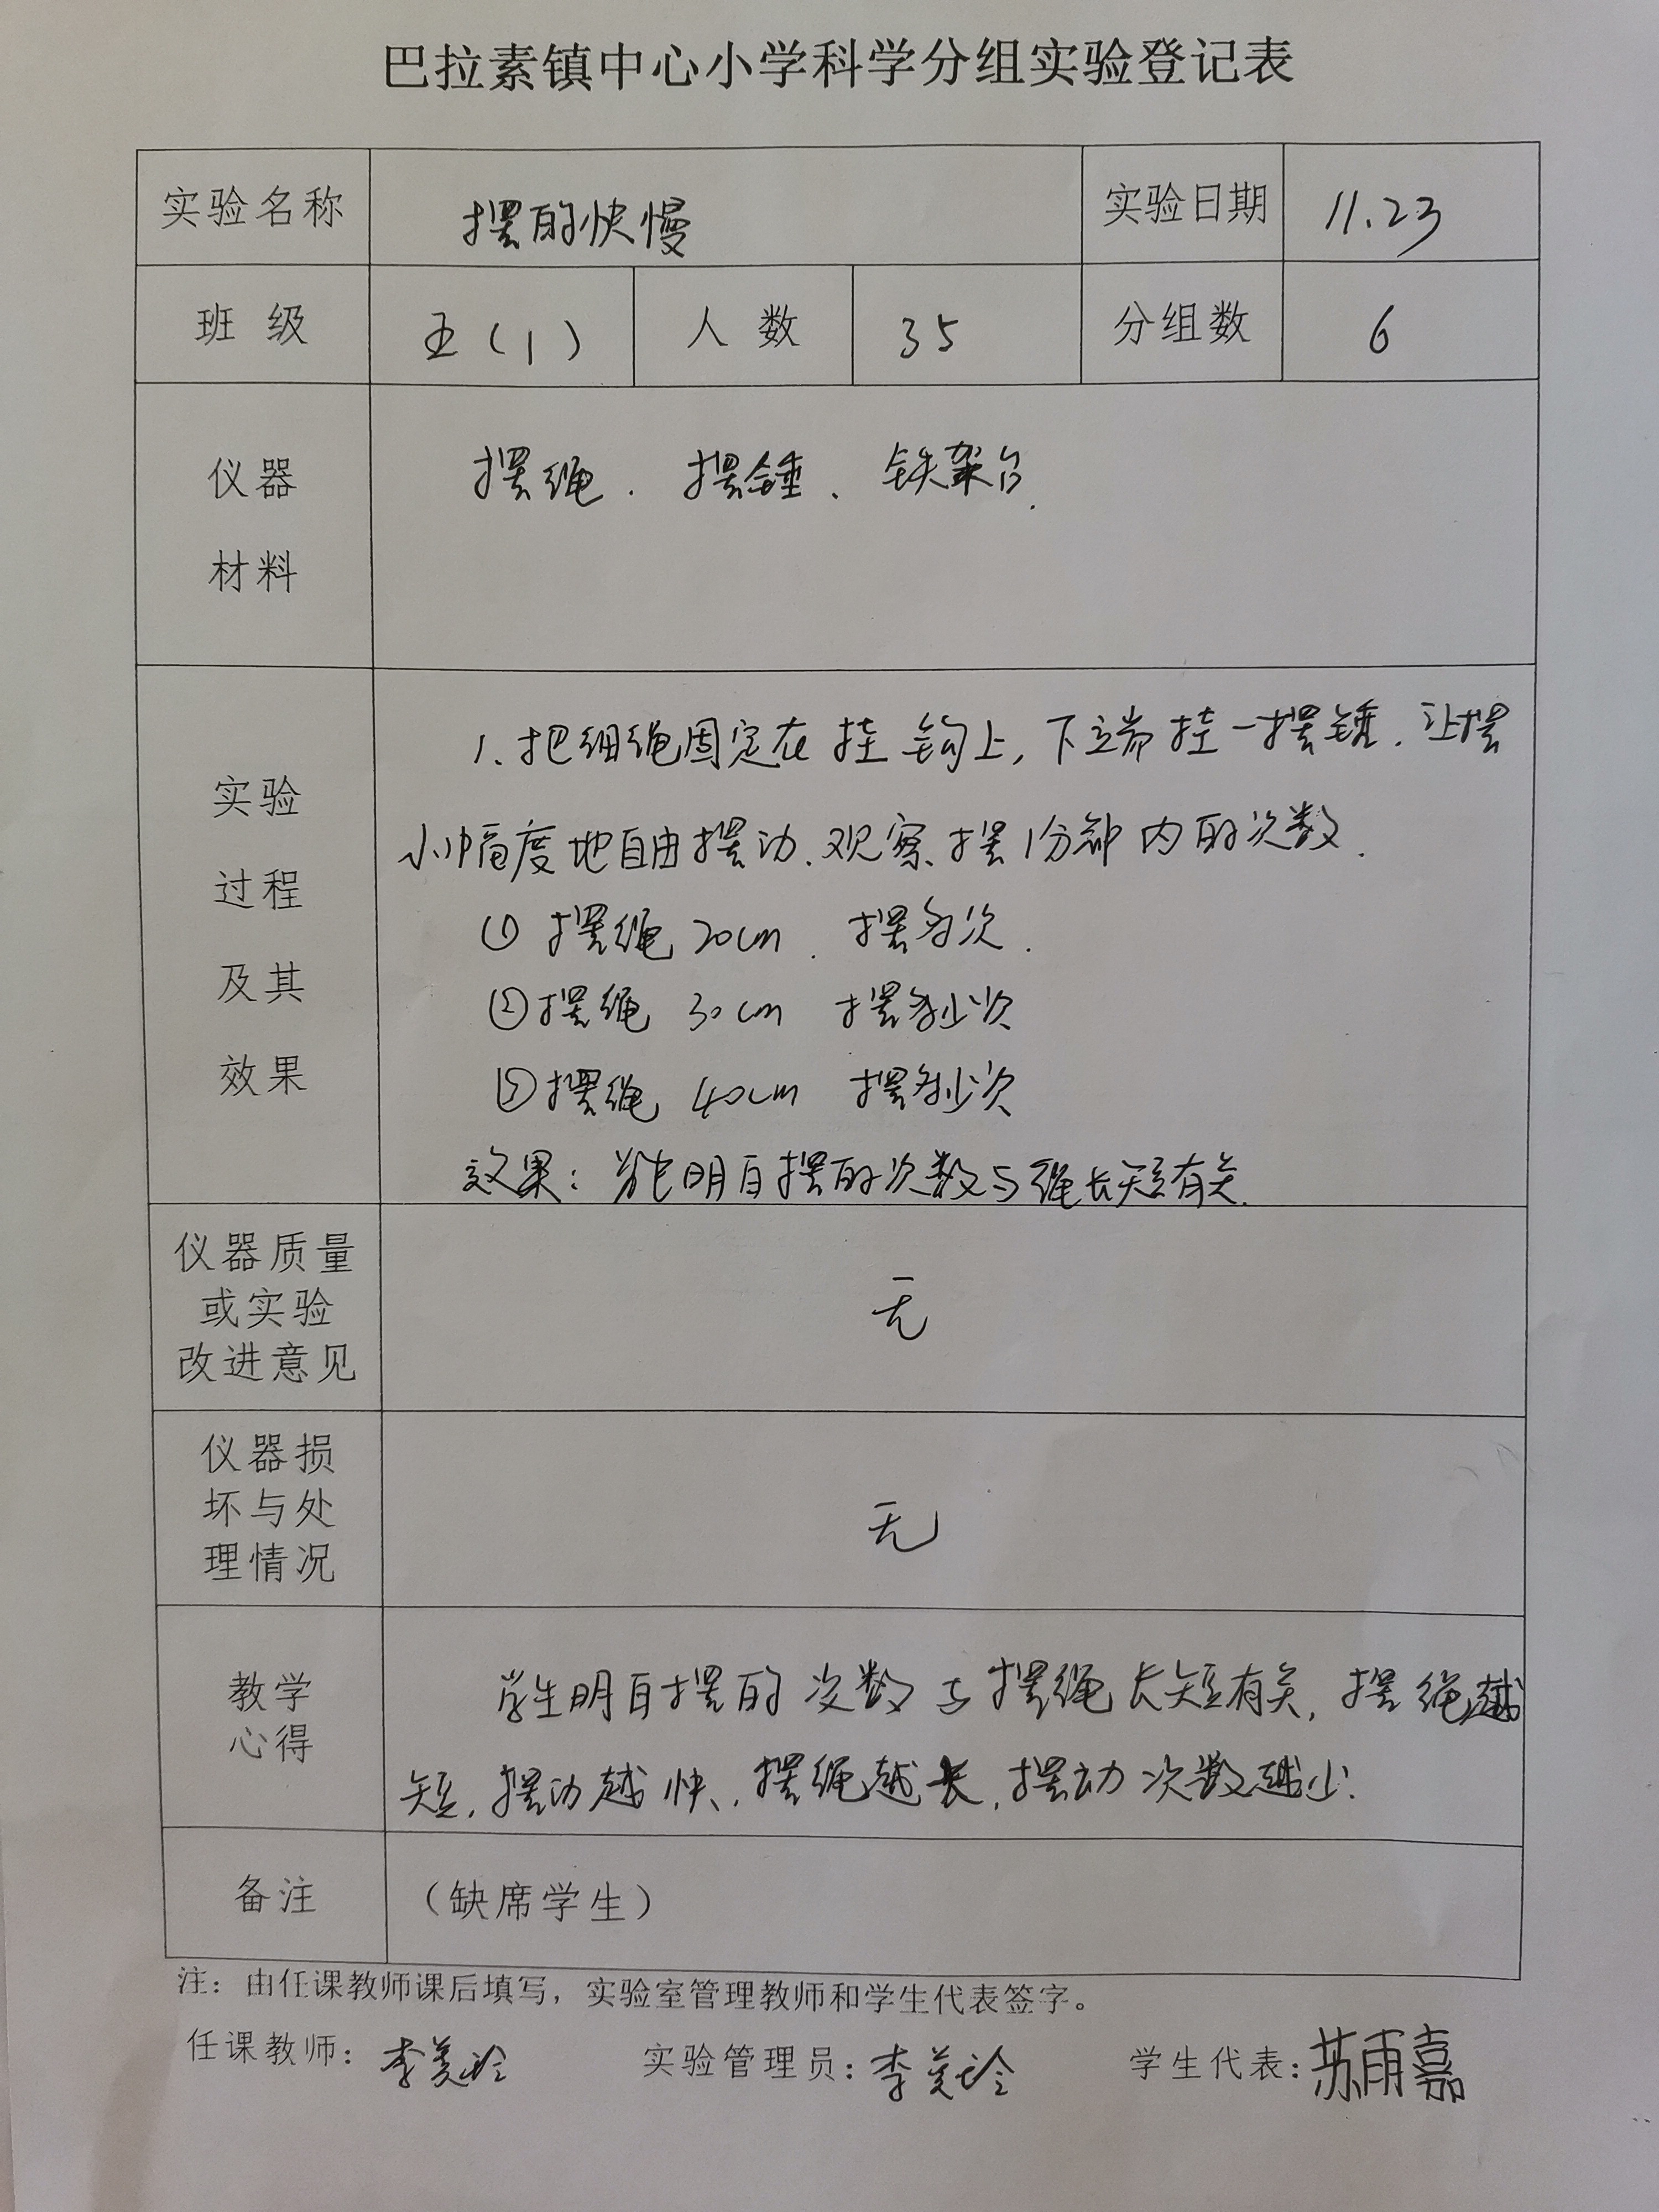 巴拉素镇中心小学科学分组实验登记表
实验名称 摆的快慢 实验日期 11.23
班 级 五(1) 人 数 35 分组数 6
仪器
材料
摆绳、摆锤、铁架台.
实验
过程
及其
效果
1、把细绳固定在挂钩上,下端挂一摆锤.让摆
小幅度地自由摆动.观察摆1分钟内的次数.
① 摆绳 20cm. 摆多次.
②摆绳 30cm 摆多少次
③摆绳 40cm 摆多少次
效果: 明白摆的次数与绳长短有关.
仪器质量
或实验
改进意见
无
仪器损
坏与处
理情况
无
教学
心得
学生明白摆的次数与摆绳长短有关,摆绳越
短,摆动越快,摆绳越长,摆动次数越少.
备注 (缺席学生)
注:由任课教师课后填写,实验室管理教师和学生代表签字。
任课教师:李美玲 实验管理员:李美玲 学生代表:苏雨嘉